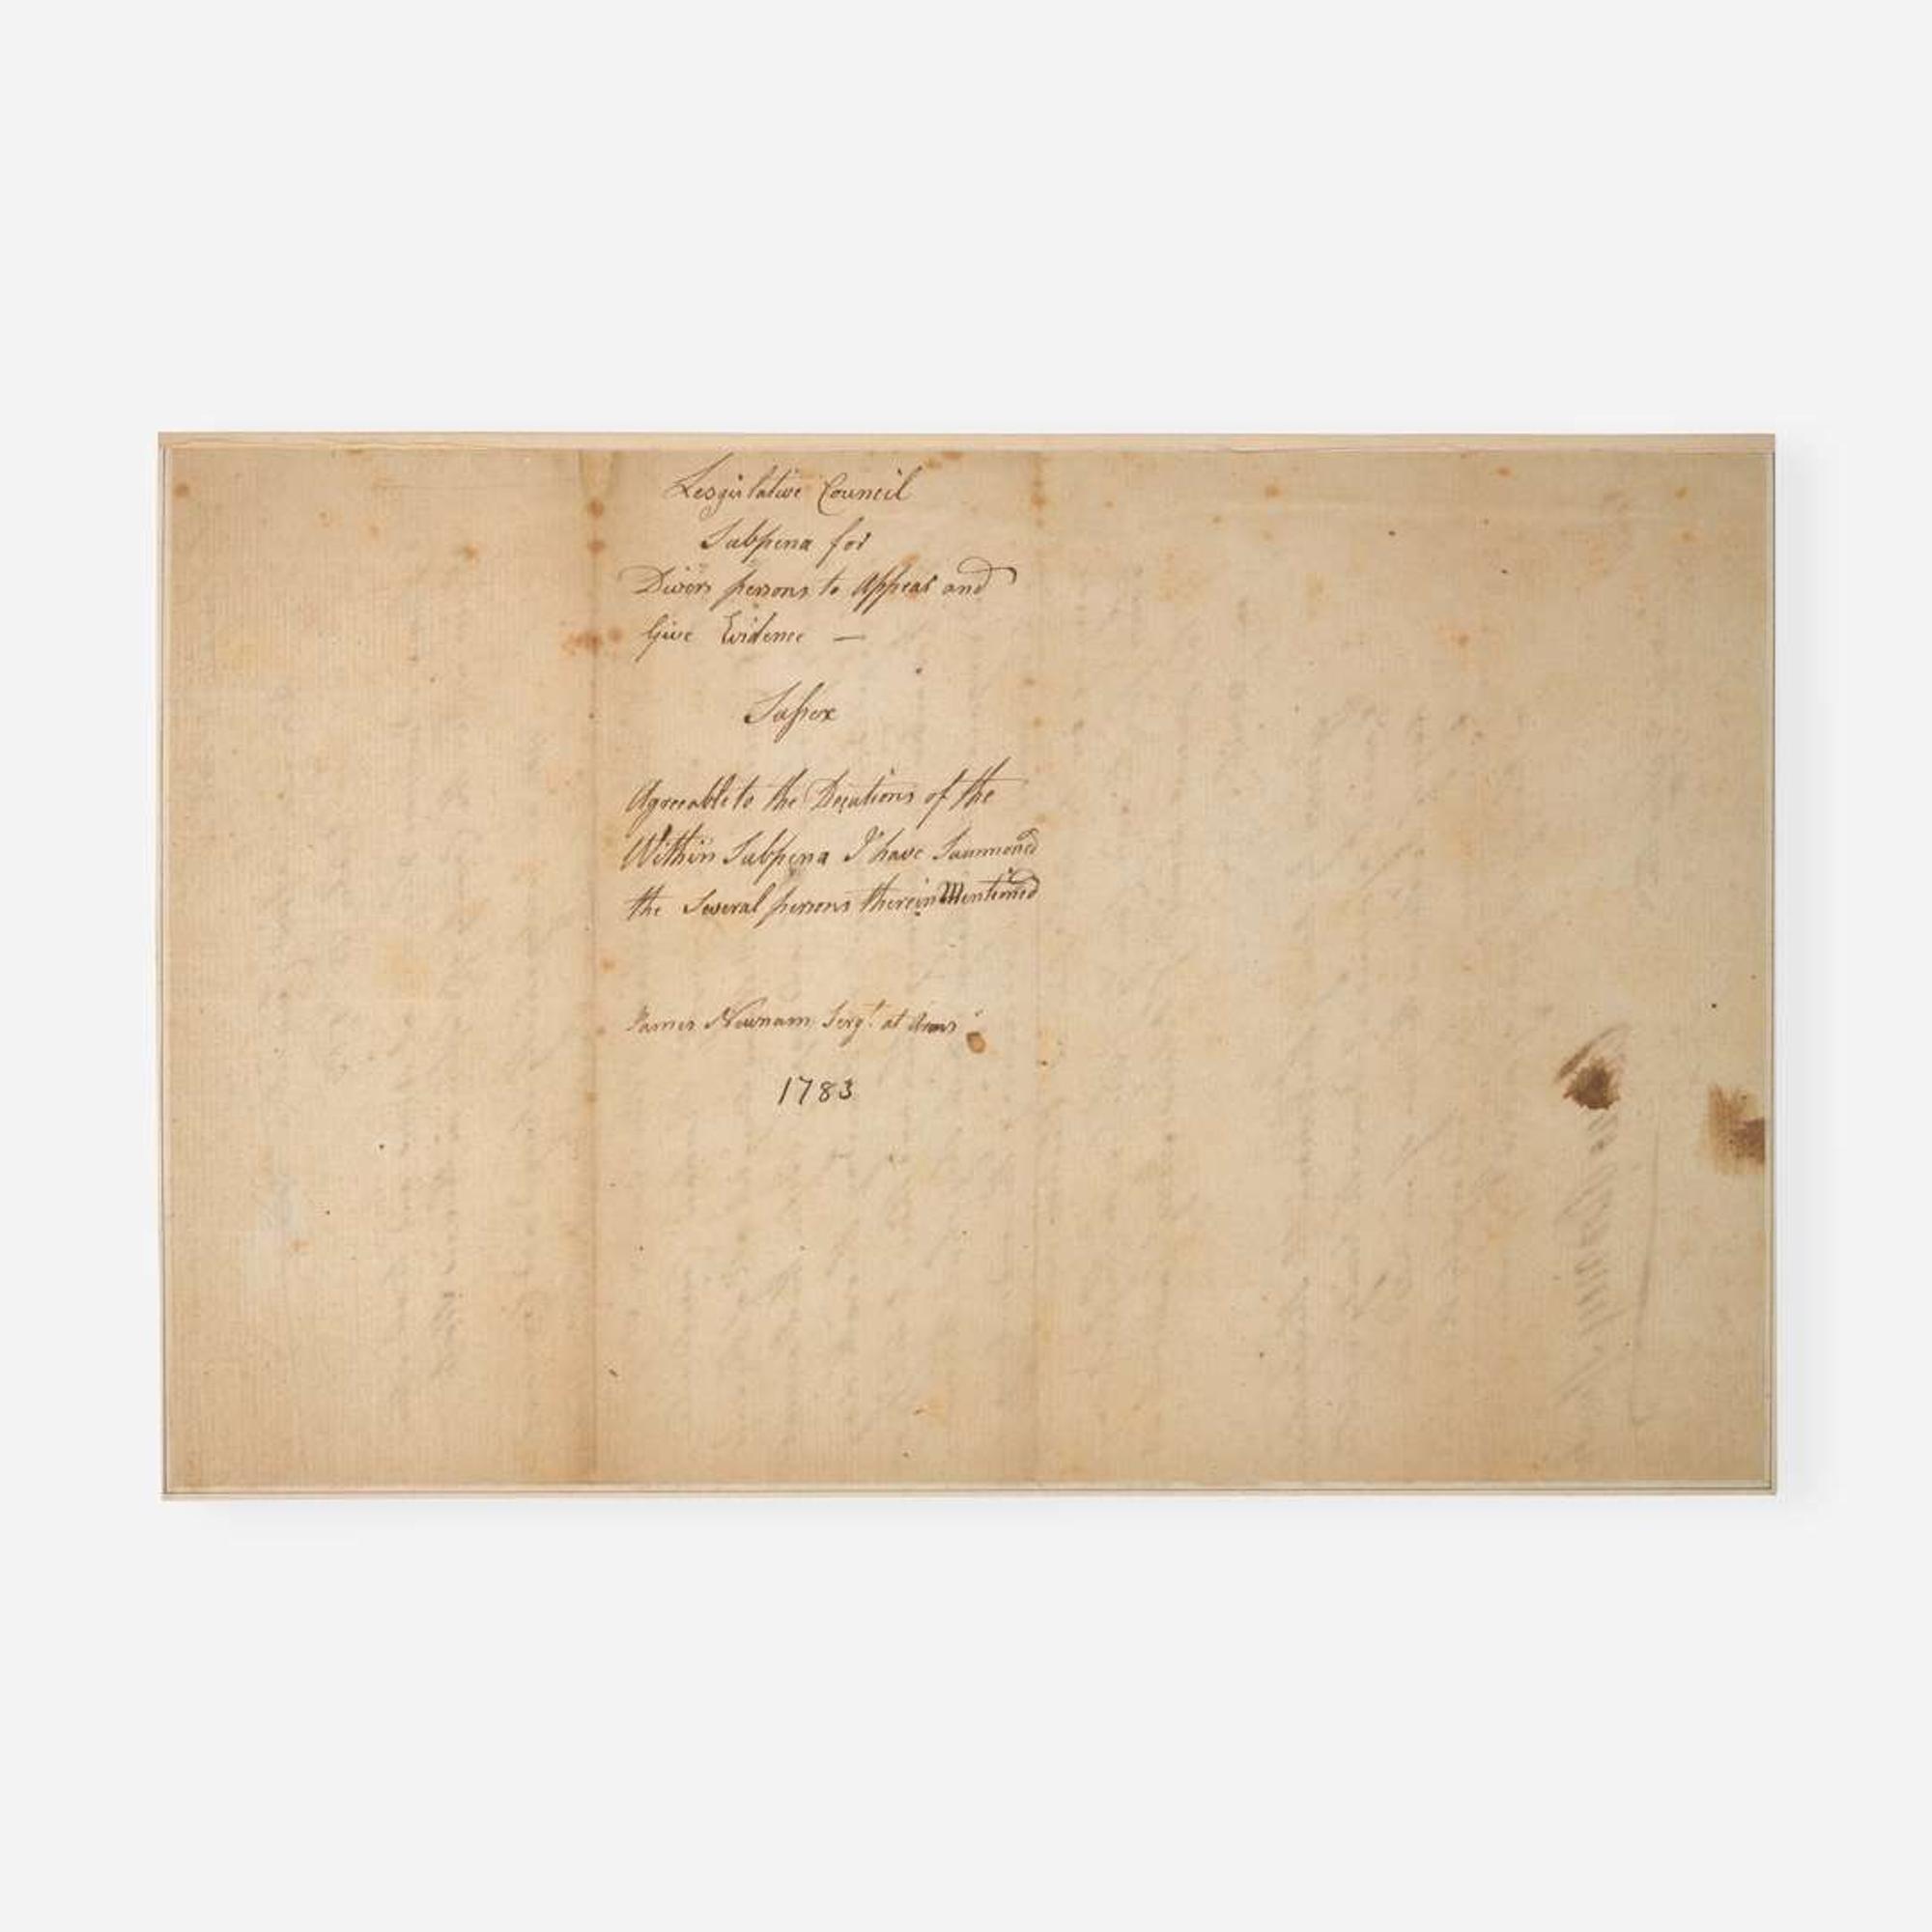 Lesgislative Council
Subpena for
Divers persons to Appear and
Give Evidence —
Sussex
Agreeable to the Derections of the
Within Subpena I have Summoned
the Several persons therein Mentioned
James Newnam Sergt. at Arms
1783